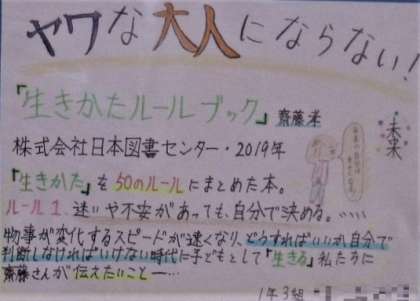 ヤワな大人にならない!
『生きかたルールブック』 齋藤孝
株式会社日本図書センター・2019年
『生きかた』を50のルールにまとめた本。
ルール1. 迷いや不安があっても、自分で決める。、、、、
物事が変化するスピードが速くなり、どうすればいいか、自分で
判断しなければいけない時代に子どもとして『生きる』私たちに
齋藤さんが伝えたいこと―…
未来
1年3組